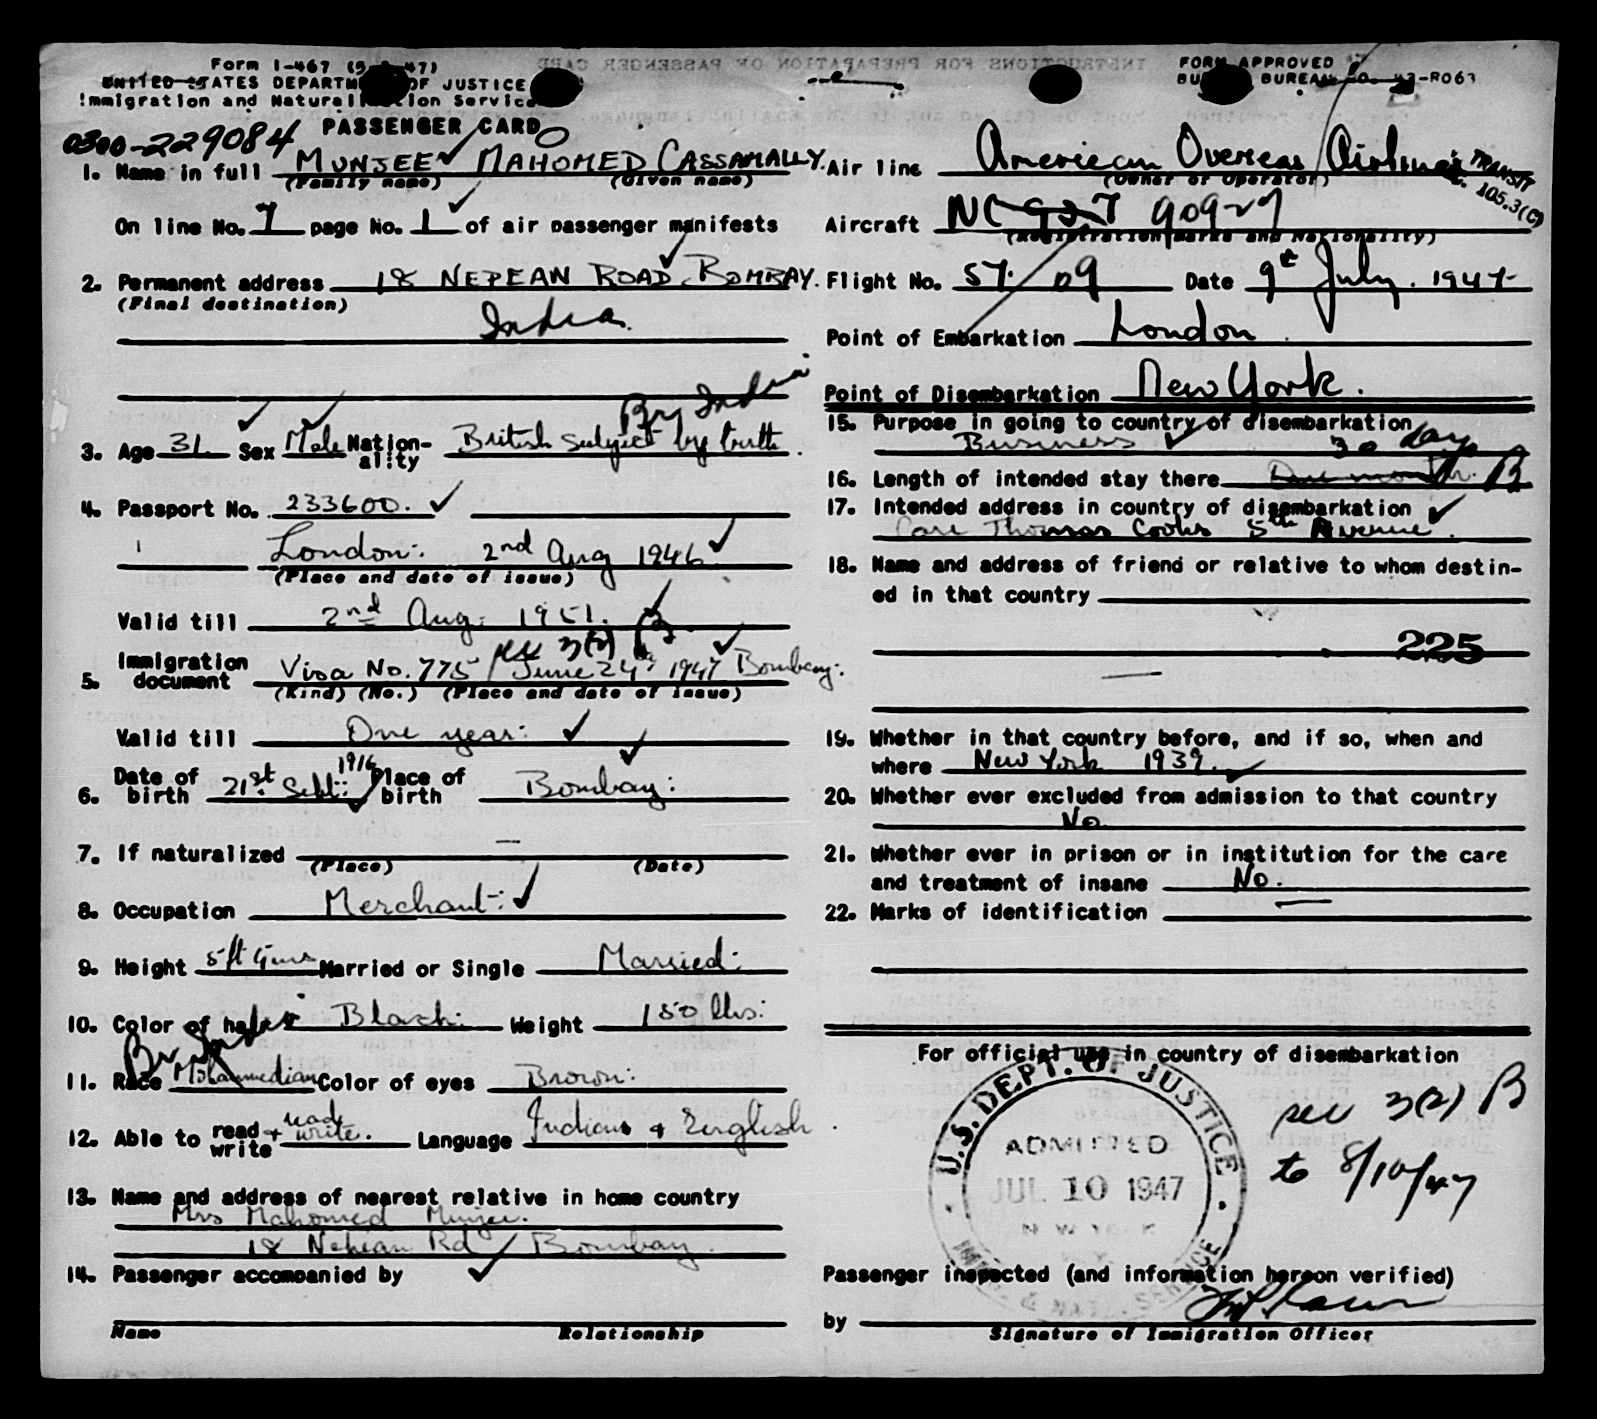 Form I-467
UNITED STATES DEPARTMENT OF JUSTICE
Immigration and Naturalization Service
0300-229084
PASSENGER CARD
1. Name in full MUNJEE MAHOMED CASSAMALLY.
(Family name) (Given name)
On line No. 7 page No. 1 of air passenger manifests
2. Permanent address 18 NEPEAN ROAD, BOMBAY.
(Final destination)
India.
Br India
3. Age 31. Sex Male Nation-ality British subject by birth.
4. Passport No. 233600.
London: 2nd Aug 1946
(Place and date of issue)
Valid till 2nd Aug: 1951.
sec 3(2) B
5. Immigration document Visa No. 775 / June 24th 1947 Bombay:
(Kind) (No.) (Place and date of issue)
Valid till One year:
6. Date of birth 21st Sept: 1916 Place of birth Bombay:
7. If naturalized —
(Place) (Date)
8. Occupation Merchant:
9. Height 5ft Married or Single Married:
10. Color of hair Black: Weight 150 lbs:
Br India
11. Race Mohammedian Color of eyes Brown:
12. Able to read + write read write. Language Indian & English.
13. Name and address of nearest relative in home country
Mrs Mahomed Munjee.
18 Nepean Rd Bombay.
14. Passenger accompanied by
Name Relationship
FORM APPROVED
BUREAU NO. 43-R063
Air line American Overseas Airlines
(Owner or Operator)
TRANSIT
105.3(C)
Aircraft NC 927 90927
(Registration marks and Nationality)
Flight No. 57. 09 Date 9th July. 1947-
Point of Embarkation London.
Point of Disembarkation New York.
15. Purpose in going to country of disembarkation
Business
30 days
16. Length of intended stay there One month. B
17. Intended address in country of disembarkation
Care Thomas Cooks 5th Avenue.
18. Name and address of friend or relative to whom destin-
ed in that country
225
19. Whether in that country before, and if so, when and
where New York 1939.
20. Whether ever excluded from admission to that country
No
21. Whether ever in prison or in institution for the care
and treatment of insane No.
22. Marks of identification —
For official use in country of disembarkation
U.S. DEPT. OF JUSTICE
ADMITTED
JUL 10 1947
IMMIG. & NAT. SERVICE
sec 3(2) B
to 8/10/47
Passenger inspected (and information hereon verified)
by
Signature of Immigration Officer